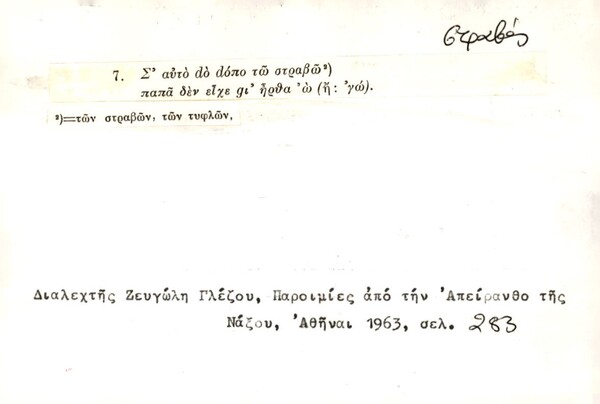 στραβός
7. Σ' αὐτὸ dὸ dόπο τῶ στραβῶ²)
παπᾶ δὲν εἶχε gι' ἦρθα 'ὠ (ἤ: 'γώ).
²)=τῶν στραβῶν, τῶν τυφλῶν.
Διαλεχτῆς Ζευγώλη Γλέζου, Παροιμίες ἀπό τήν 'Απείρανθο τῆς
Νάξου, 'Αθῆναι 1963, σελ. 283